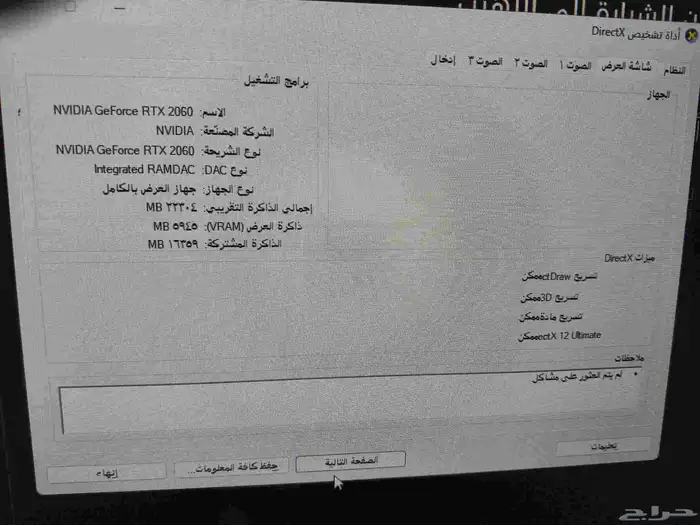 أداة تشخيص DirectX
النظام شاشة العرض الصوت ١ الصوت ٢ الصوت ٣ إدخال
الجهاز
برامج التشغيل
الاسم: NVIDIA GeForce RTX 2060
الشركة المصنّعة: NVIDIA
نوع الشريحة: NVIDIA GeForce RTX 2060
نوع DAC: Integrated RAMDAC
نوع الجهاز: جهاز العرض بالكامل
إجمالي الذاكرة التقريبي: ٢٢٣٠٤ MB
ذاكرة العرض (VRAM): ٥٩٤٥ MB
الذاكرة المشتركة: ١٦٣٥٩ MB
ميزات DirectX
تسريع ctDrawممكن
تسريع 3Dممكن
تسريع مادةممكن
ectX 12 Ultimateممكن
ملاحظات
• لم يتم العثور على مشاكل
تعليمات
الصفحة التالية
حفظ كافة المعلومات...
إنهاء
حراج